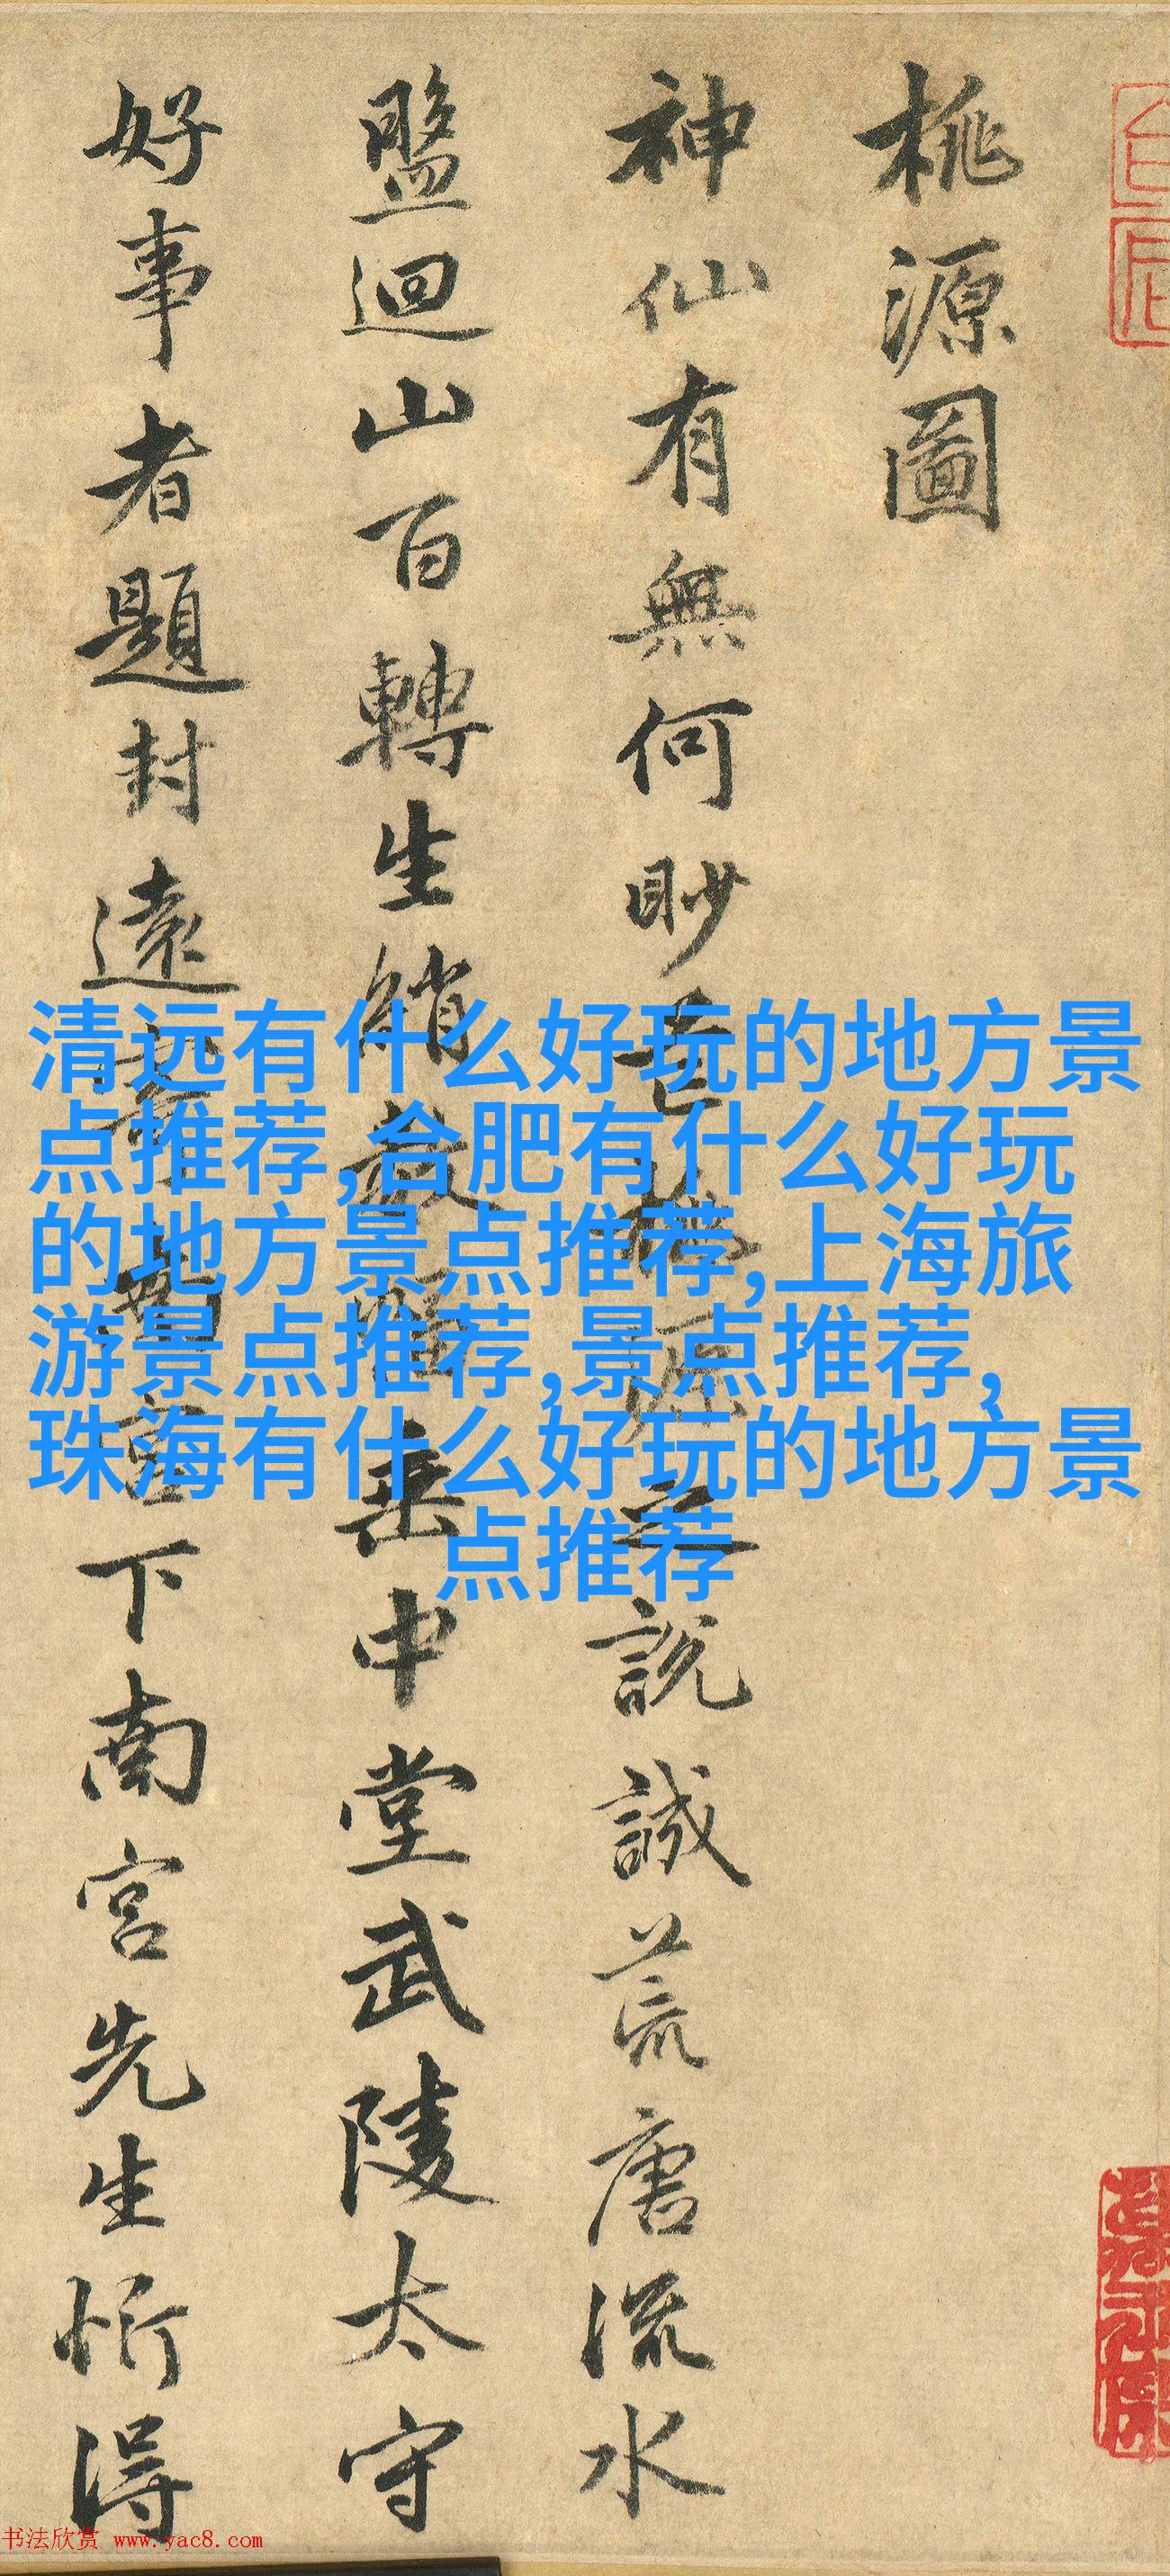 桃源圖
神仙有無何眇芒桃源之說誠荒唐流水
盤迴山百轉生綃數幅垂中堂武陵太守
好事者題封遠寄南宮下南宮先生忻得
清远有什么好玩的地方景
点推荐,合肥有什么好玩
的地方景点推荐,上海旅
游景点推荐,景点推荐,
珠海有什么好玩的地方景
点推荐
书法欣赏 www.yac8.com